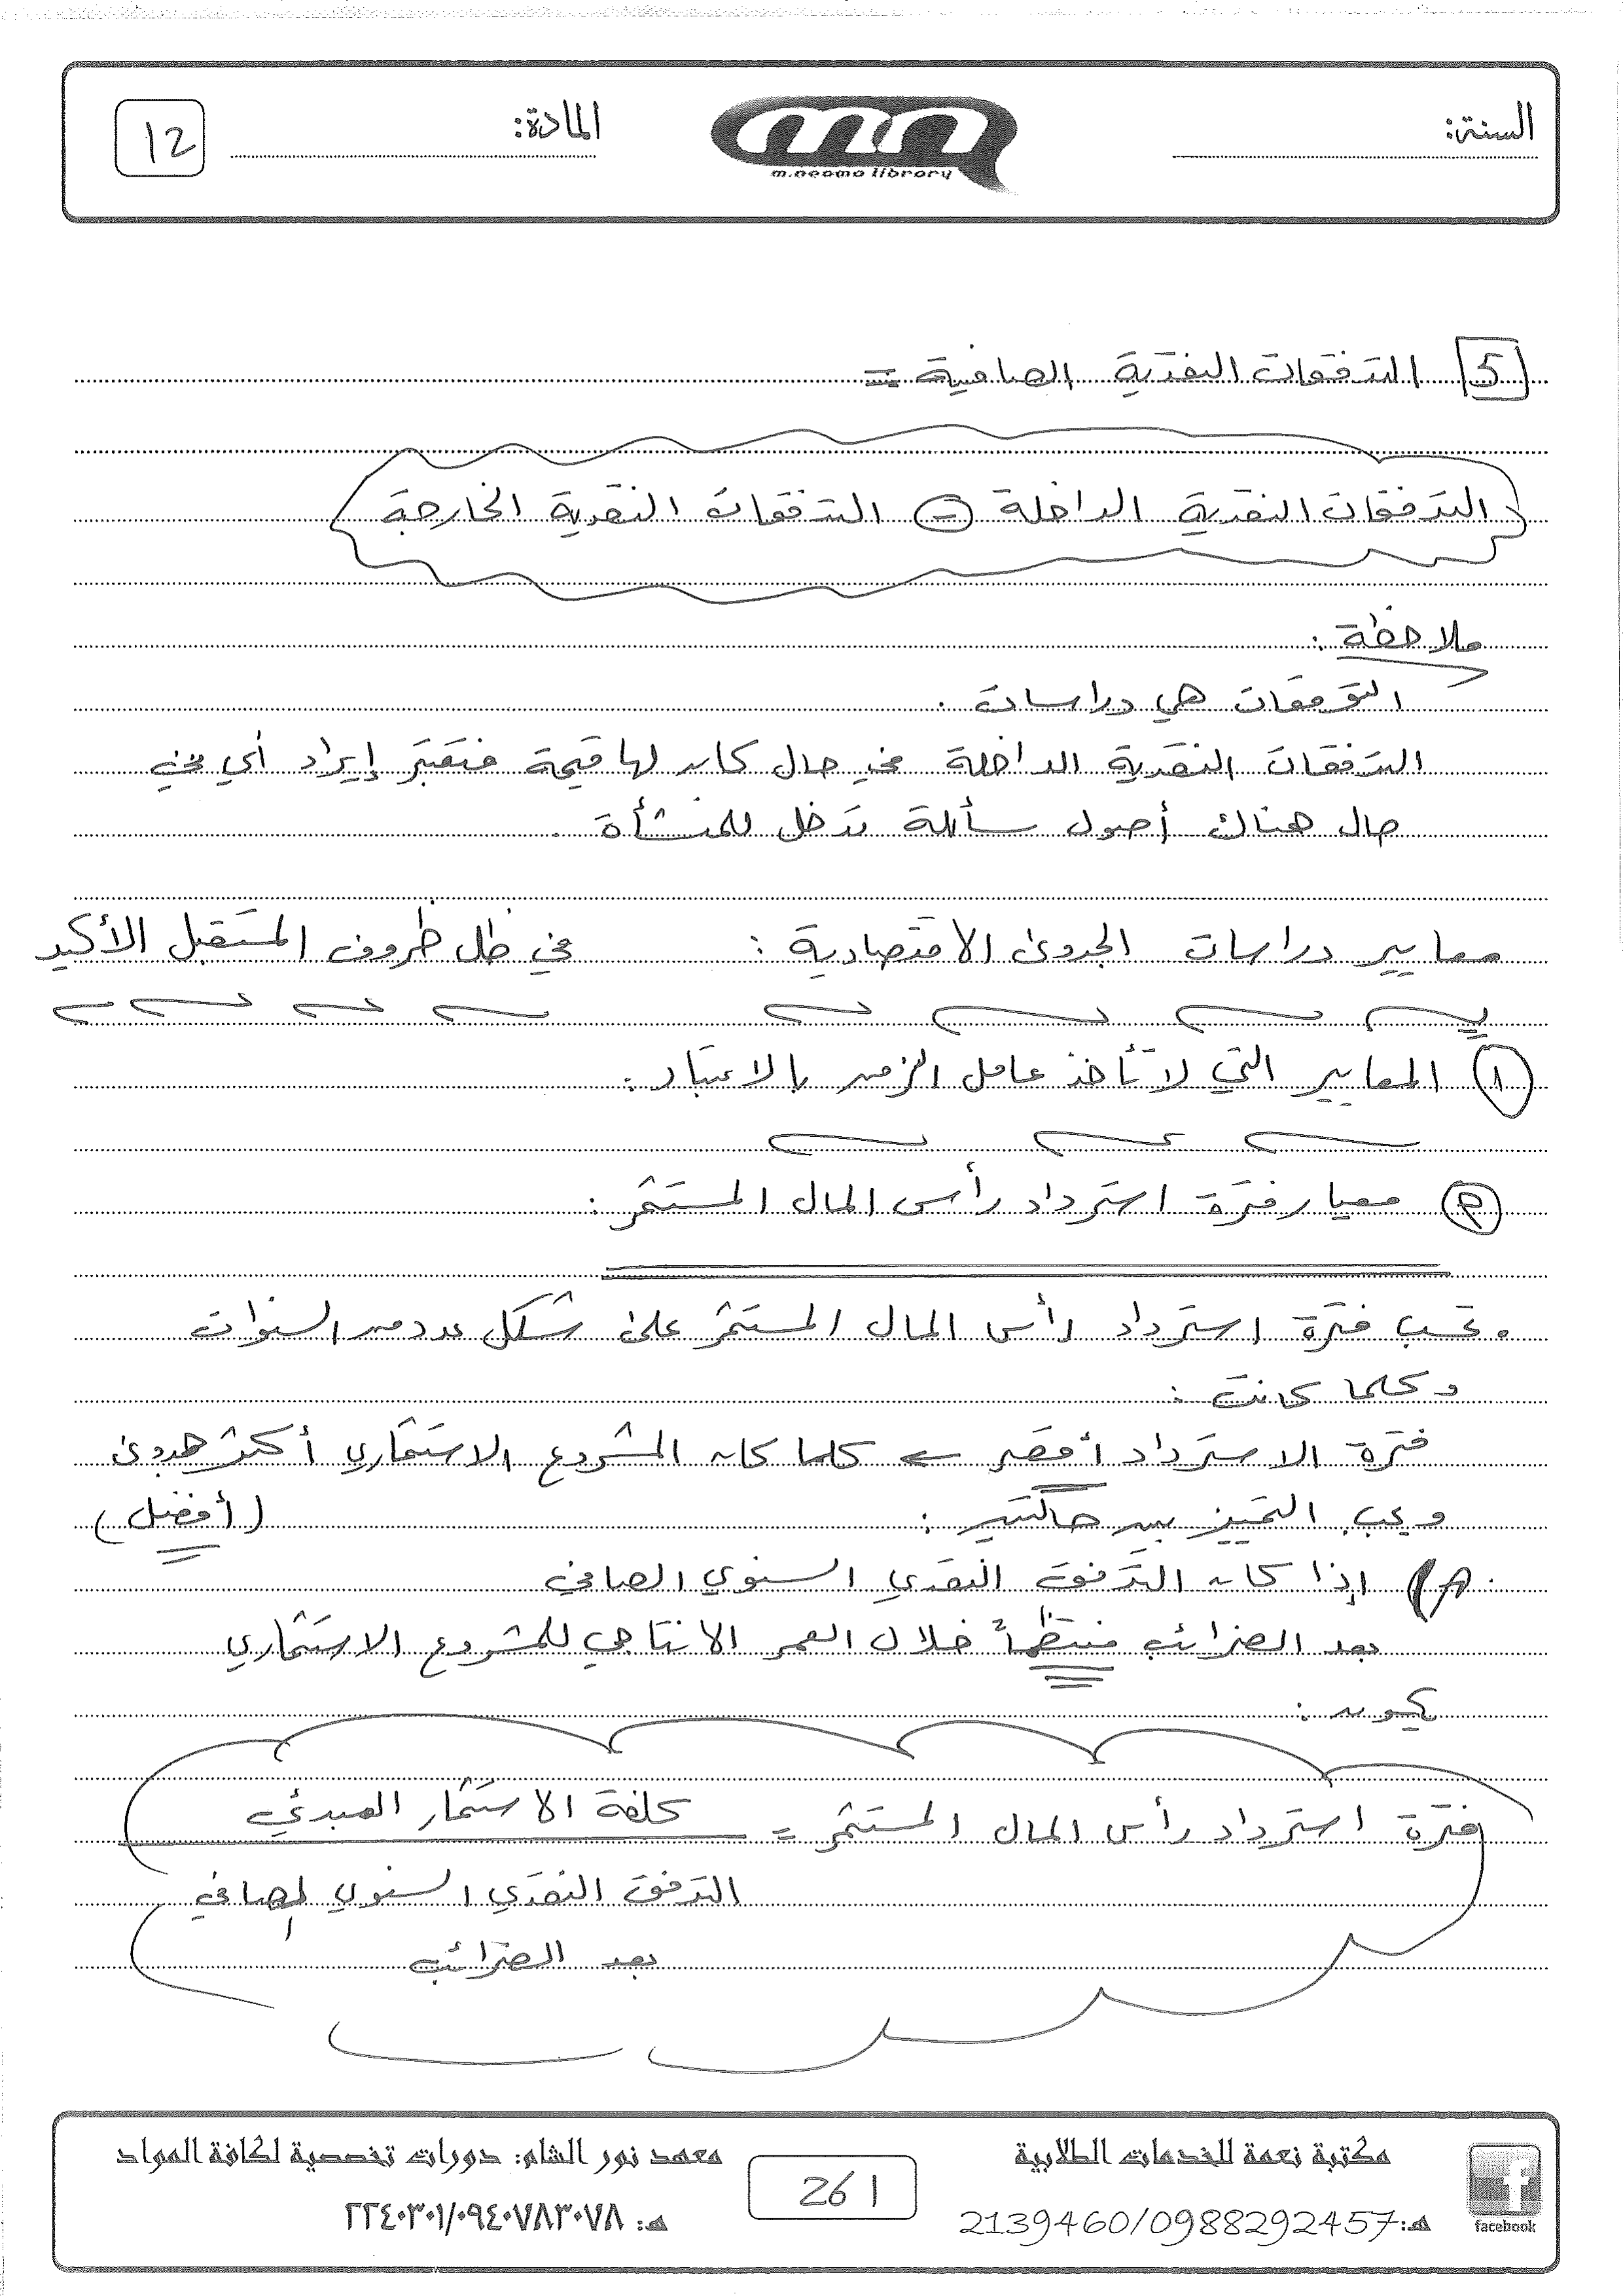 السنة:
m.neama library
المادة:
12
5 التدفقات النقدية الصافية =
التدفقات النقدية الداخلة - التدفقات النقدية الخارجة
ملاحظة :
التوقعات هي دراسات .
التدفقات النقدية الداخلة في حال كان لها قيمة فتعتبر إيراد أي في
حال هناك أصول سائلة تدخل للمنشأة .
معايير دراسات الجدوى الاقتصادية : في ظل ظروف المستقبل الأكيد
1 المعايير التي لا تأخذ عامل الزمن بالاعتبار :
معيار فترة استرداد رأس المال المستثمر :
. تحسب فترة استرداد رأس المال المستثمر على شكل عدد من السنوات
وكلما كانت :
فترة الاسترداد أقصر ← كلما كان المشروع الاستثماري أكثر جدوى
(أفضل)
ويجب التمييز بين حالتين :
إذا كان التدفق النقدي السنوي الصافي
بعد الضرائب منتظماً خلال العمر الانتاجي للمشروع الاستثماري
يكون :
فترة استرداد رأس المال المستثمر = كلفة الاستثمار المبدئي
التدفق النقدي السنوي الصافي
بعد الضرائب
facebook
مكتبة نعمة للخدمات الطلابية
هـ: 2139460/0988292457
261
معهد نور الشام: دورات تخصصية لكافة المواد
هـ: ٢٢٤٠٣٠١/٠٩٤٠٧٨٣٠٧٨